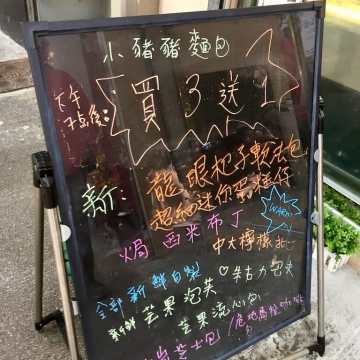 小豬豬麵包
下午
7點後:
買3送1
新:
龍眼杞子軟法包
超細迷你蛋糕仔
焗西米布丁
WARM
中大檸檬批
全部新鮮自製
芒果泡芙♡朱古力泡芙
芒果流心包
芝士包